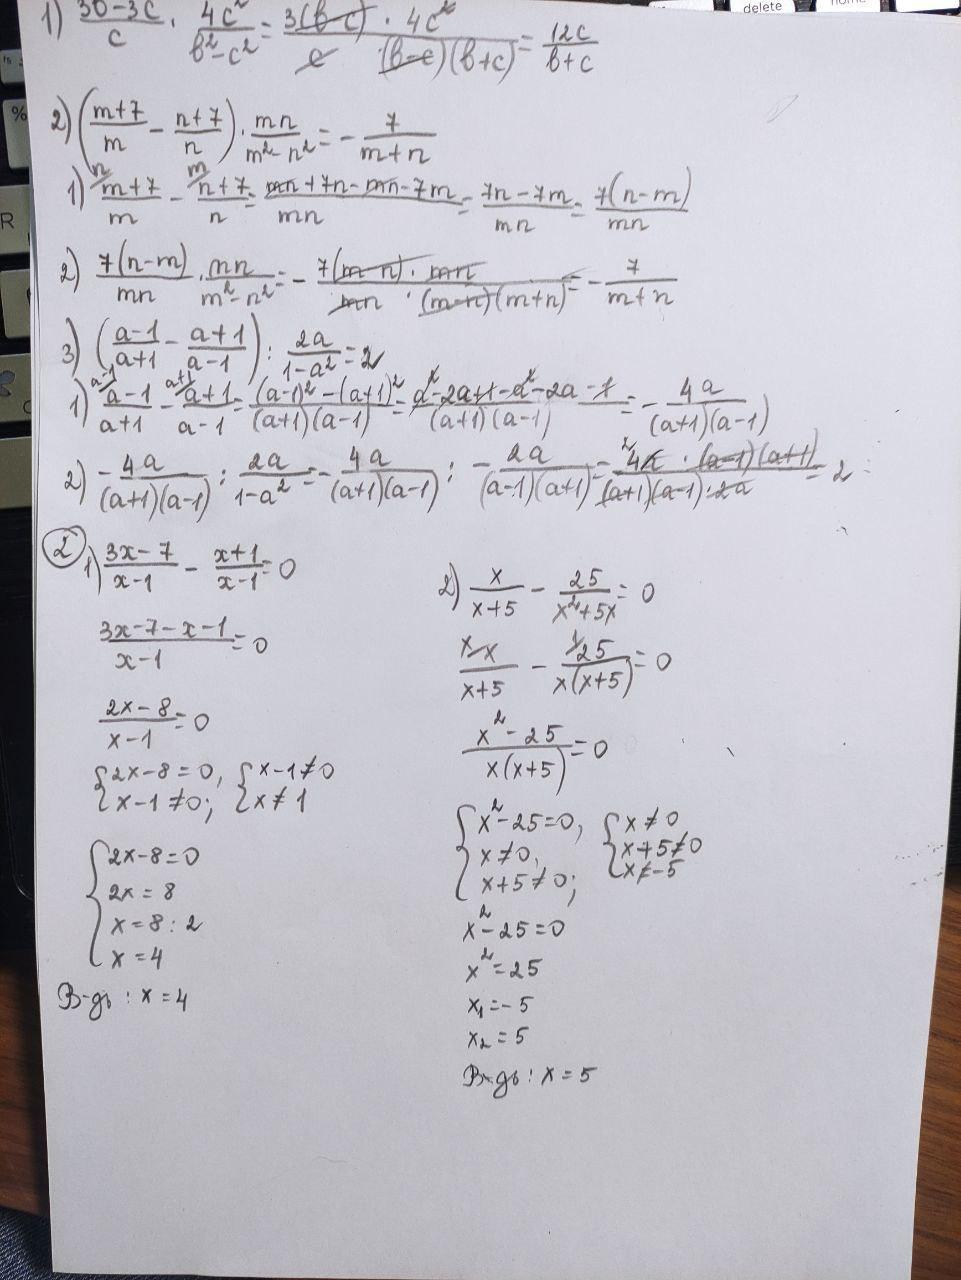 delete
home
%
R
1) (3b-3c)/c · 4c²/(b²-c²) = 3(b-c) · 4c²/(c (b-c)(b+c)) = 12c/(b+c)
2) ((m+7)/m - (n+7)/n) · mn/(m²-n²) = - 7/(m+n)
1) n/ (m+7)/m - m/ (n+7)/n = (mn+7n-mn-7m)/mn = (7n-7m)/mn = 7(n-m)/mn
2) 7(n-m)/mn · mn/(m²-n²) = - 7(m-n) · mn/(mn · (m-n)(m+n)) = - 7/(m+n)
3) ((a-1)/(a+1) - (a+1)/(a-1)) : 2a/(1-a²) = 2
1) a-1/ (a-1)/(a+1) - a+1/ (a+1)/(a-1) = ((a-1)² - (a+1)²)/((a+1)(a-1)) = (a²-2a+1-a²-2a-1)/((a+1)(a-1)) = - 4a/((a+1)(a-1))
2) - 4a/((a+1)(a-1)) : 2a/(1-a²) = - 4a/((a+1)(a-1)) : - 2a/((a-1)(a+1)) = 4a · (a-1)(a+1)/((a+1)(a-1) · 2a) = 2
2
1) (3x-7)/(x-1) - (x+1)/(x-1) = 0
(3x-7-x-1)/(x-1) = 0
(2x-8)/(x-1) = 0
{2x-8=0, {x-1≠0
x-1≠0; x≠1
{2x-8=0
2x=8
x=8:2
x=4
В-дь: x=4
2) x/(x+5) - 25/(x²+5x) = 0
x/ x/(x+5) - 1/ 25/(x(x+5)) = 0
(x²-25)/(x(x+5)) = 0
{x²-25=0, {x≠0
x≠0, x+5≠0
x+5≠0; x≠-5
x²-25=0
x²=25
x₁=-5
x₂=5
В-дь: x=5